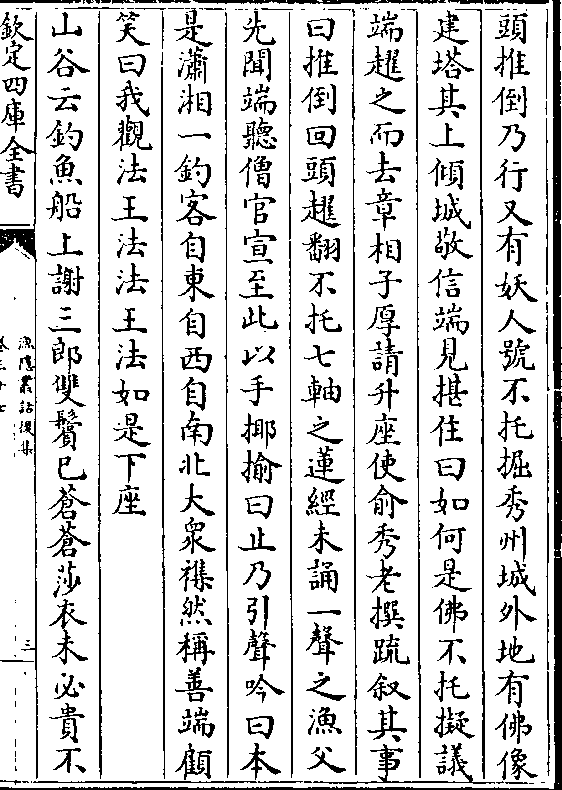 頭推倒乃行又有妖人號不托掘秀州城外地有佛像
建塔其上傾城敬信端見揕住曰如何是佛不托擬議
端趯之而去章相子厚請升座使俞秀老撰䟽叙其事
曰推倒回頭趯翻不托七軸之蓮經未誦一聲之漁父
先聞端聽僧官宣至此以手揶揄曰止乃引聲吟曰本
是瀟湘一釣客自東自西自南北大衆襍然稱善端顧
笑曰我觀法王法法王法如是下座
山谷云釣魚船上謝三郎雙鬢已蒼蒼莎衣未必貴不
欽定四庫全書
漁隱叢話後集
卷三十七
三